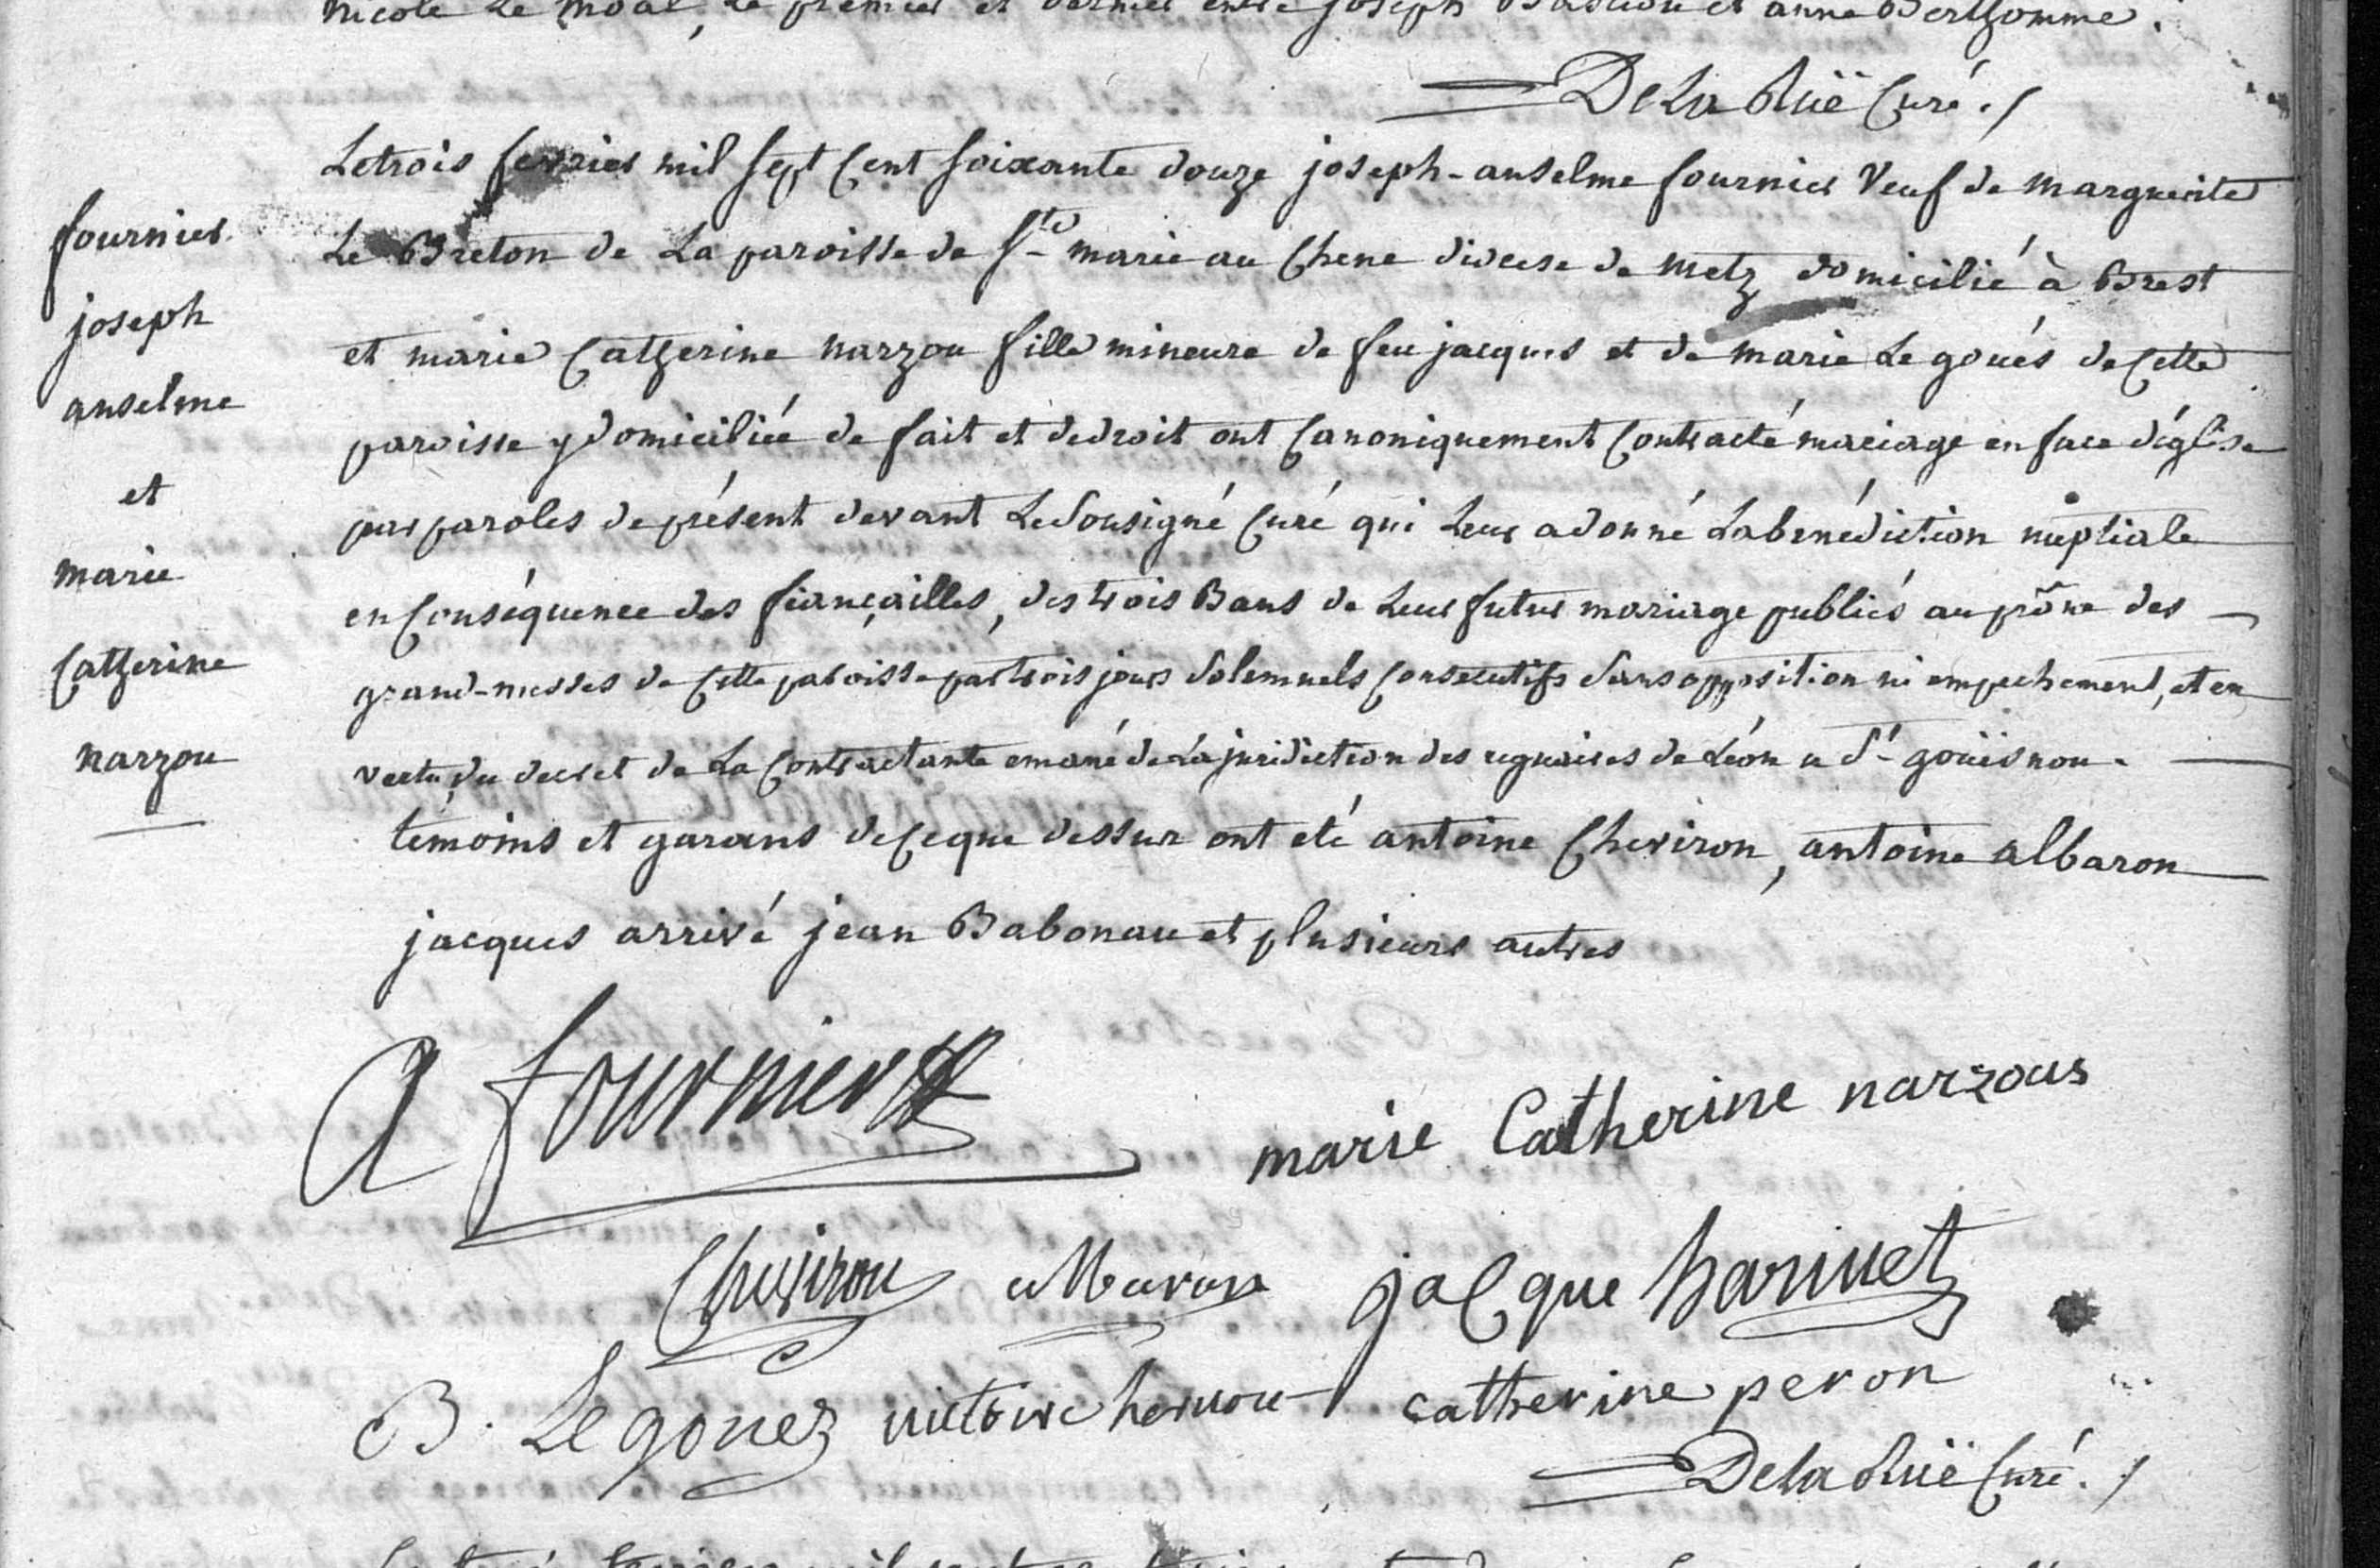 nicole Le moal, Le premier et dernier entre joseph et anne Berthomme.
De La Ruë Curé ./
Le trois fevrier mil sept Cent soixante douze joseph-anselme fournier Veuf de marguerite
Le Breton de La paroisse de Ste marie au Chene diocese de metz domicilié à Brest
et marie Catherine narzou fille mineure de feu jacques et de marie Le goués de Cette
paroisse y domiciliée de fait et de droit ont Canoniquement Contracté mariage en face d'église
par paroles de présent devant Le Sousigné Curé qui Leur a donné La bénédiction nuptiale
en Conséquence des fiançailles, des trois Bans de Leur futur mariage publiés au prône des
grand-messes de Cette paroisse par trois jours Solemnels Consecutifs Sans opposition ni empechement, et en
vertu du decret de La Contractante emané de La juridiction des reguaires de Léon a St goüisnou.
témoins et garans de Ce que dessur ont eté antoine Cheviron, antoine albaron
jacques arrivé jean Babonau et plusieurs autres
fournier
joseph
anselme
et
marie
Catherine
narzou
A fournier
marie Catherine narzous
Cheviron jacque harivet
B. Le gouez victoire catherine peron
De La Ruë Curé. /